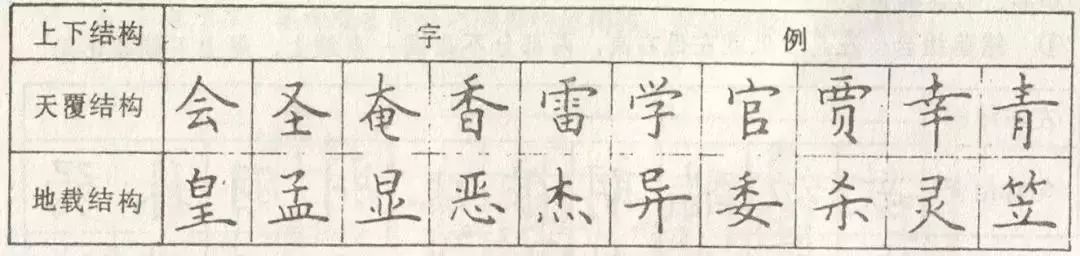 上下结构 字 例
天覆结构 会 圣 奄 香 雷 学 官 贾 幸 青
地载结构 皇 孟 显 恶 杰 异 委 杀 灵 笠